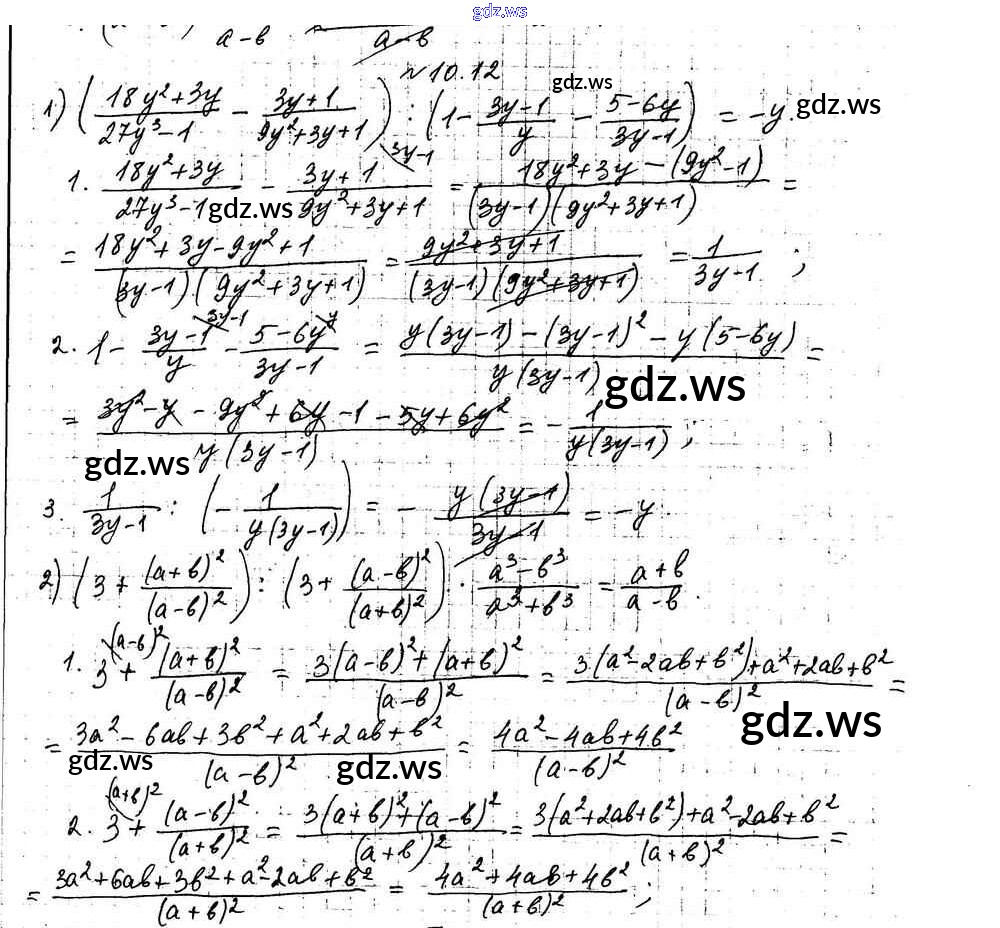 gdz.ws
a-в a-в
№10.12
1) ((18y²+3y)/(27y³-1) - (3y+1)/(9y²+3y+1)) : (1 - (3y-1)/y - (5-6y)/(3y-1)) = -y.
gdz.ws
gdz.ws
1. (18y²+3y)/(27y³-1) - (3y+1)/(9y²+3y+1) = (18y²+3y-(9y²-1))/((3y-1)(9y²+3y+1)) =
3y-1
gdz.ws
= (18y²+3y-9y²+1)/((3y-1)(9y²+3y+1)) = (9y²+3y+1)/((3y-1)(9y²+3y+1)) = 1/(3y-1) ;
2. 1 - (3y-1)/y - (5-6y)/(3y-1) = (y(3y-1)-(3y-1)²-y(5-6y))/(y(3y-1)) =
3y-1 y
gdz.ws
= (3y²-y-9y²+6y-1-5y+6y²)/(y(3y-1)) = -1/(y(3y-1)) ;
gdz.ws
3. 1/(3y-1) : (-1/(y(3y-1))) = - (y(3y-1))/(3y-1) = -y.
2) (3 + (a+в)²/(a-в)²) : (3 + (a-в)²/(a+в)²) · (a³-в³)/(a³+в³) = (a+в)/(a-в).
(a-в)²
1. 3 + (a+в)²/(a-в)² = (3(a-в)²+(a+в)²)/(a-в)² = (3(a²-2aв+в²)+a²+2aв+в²)/(a-в)² =
gdz.ws
= (3a²-6aв+3в²+a²+2aв+в²)/(a-в)² = (4a²-4aв+4в²)/(a-в)²
gdz.ws
gdz.ws
(a+в)²
2. 3 + (a-в)²/(a+в)² = (3(a+в)²+(a-в)²)/(a+в)² = (3(a²+2aв+в²)+a²-2aв+в²)/(a+в)² =
= (3a²+6aв+3в²+a²-2aв+в²)/(a+в)² = (4a²+4aв+4в²)/(a+в)² ;